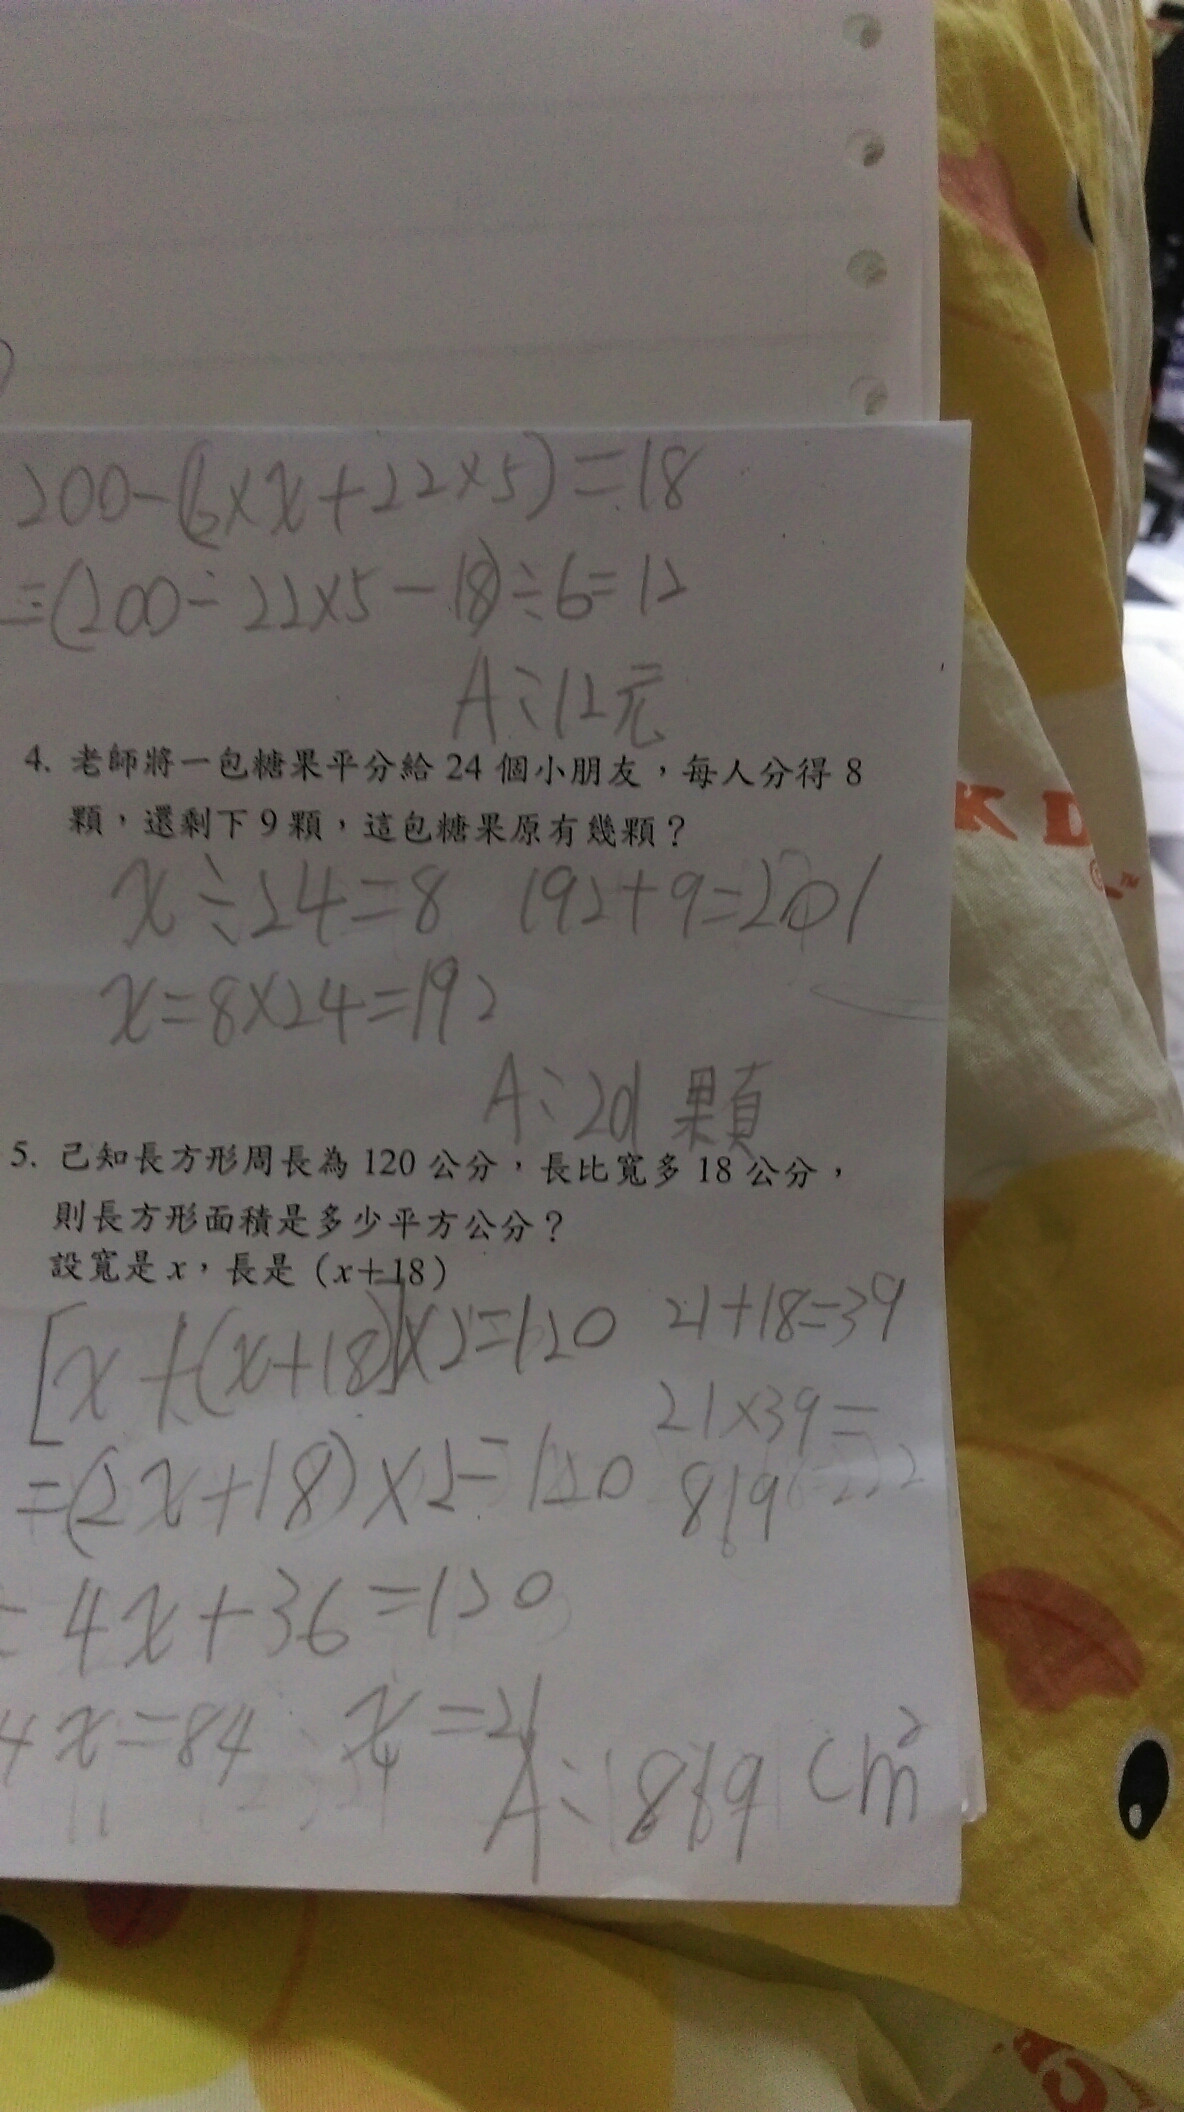 200-(6×x+22×5)=18
=(200-22×5-18)÷6=12
A:12元
4. 老師將一包糖果平分給 24 個小朋友，每人分得 8
顆，還剩下 9 顆，這包糖果原有幾顆？
x÷24=8 192+9=201
x=8×24=192
A:201顆
5. 已知長方形周長為 120 公分，長比寬多 18 公分，
則長方形面積是多少平方公分？
設寬是 x，長是（x＋18）
[x+(x+18)]×2=120 21+18=39
=(2x+18)×2=120 21×39=
819
=4x+36=120
4x=84 x=21
A:819 cm²